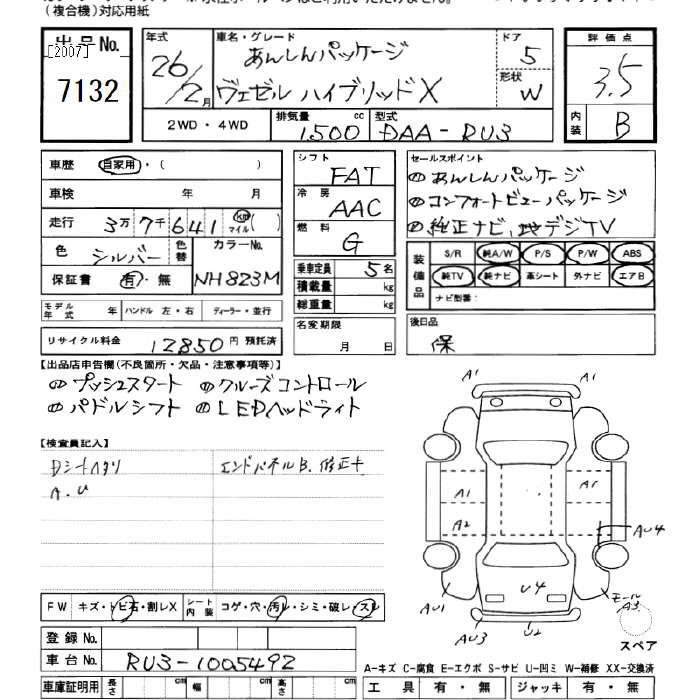 (複合機)対応用紙
出品No.
[2007]
7132
年式 26/2月
車名・グレード あんしんパッケージ
ヴェゼル ハイブリッド X
ドア 5
形状 W
評価点 3.5
内装 B
2WD・4WD
排気量 1500 cc
型式 DAA-RU3
車歴 自家用・( )
車検 年 月
走行 3万7千641 km マイル( )
色 シルバー 色替 カラーNo.
保証書 有・無 NH823M
シフト FAT
冷房 AAC
燃料 G
乗車定員 5名
積載量 kg
総重量 kg
セールスポイント
あんしんパッケージ
コンフォートビューパッケージ
純正ナビ、地デジTV
装備品
S/R 純A/W P/S P/W ABS
純TV 純ナビ 革シート 外ナビ エアB
ナビ型番:
モデル年式 年 ハンドル 左・右 ディーラー・並行
リサイクル料金 12850円 預託済
名変期限 月 日
後日品
保
【出品店申告欄(不良箇所・欠品・注意事項等)】
プッシュスタート クルーズコントロール
パドルシフト LEDヘッドライト
【検査員記入】
Dシートヘタリ エンドパネルB.修正キ
A.U
A1 A1
A1 A1
A2 AU4
U4
AU1 モール A3
AU3 U2
スペア
FW キズ・トビ石・割レX シート内装 コゲ・穴・汚レ・シミ・破レ・スレ
登録No.
車台No. RU3-1005492
A-キズ C-腐食 E-エクボ S-サビ U-凹ミ W-補修 XX-交換済
車庫証明用 長さ cm 幅 cm 高さ cm
工具 有・無 ジャッキ 有・無